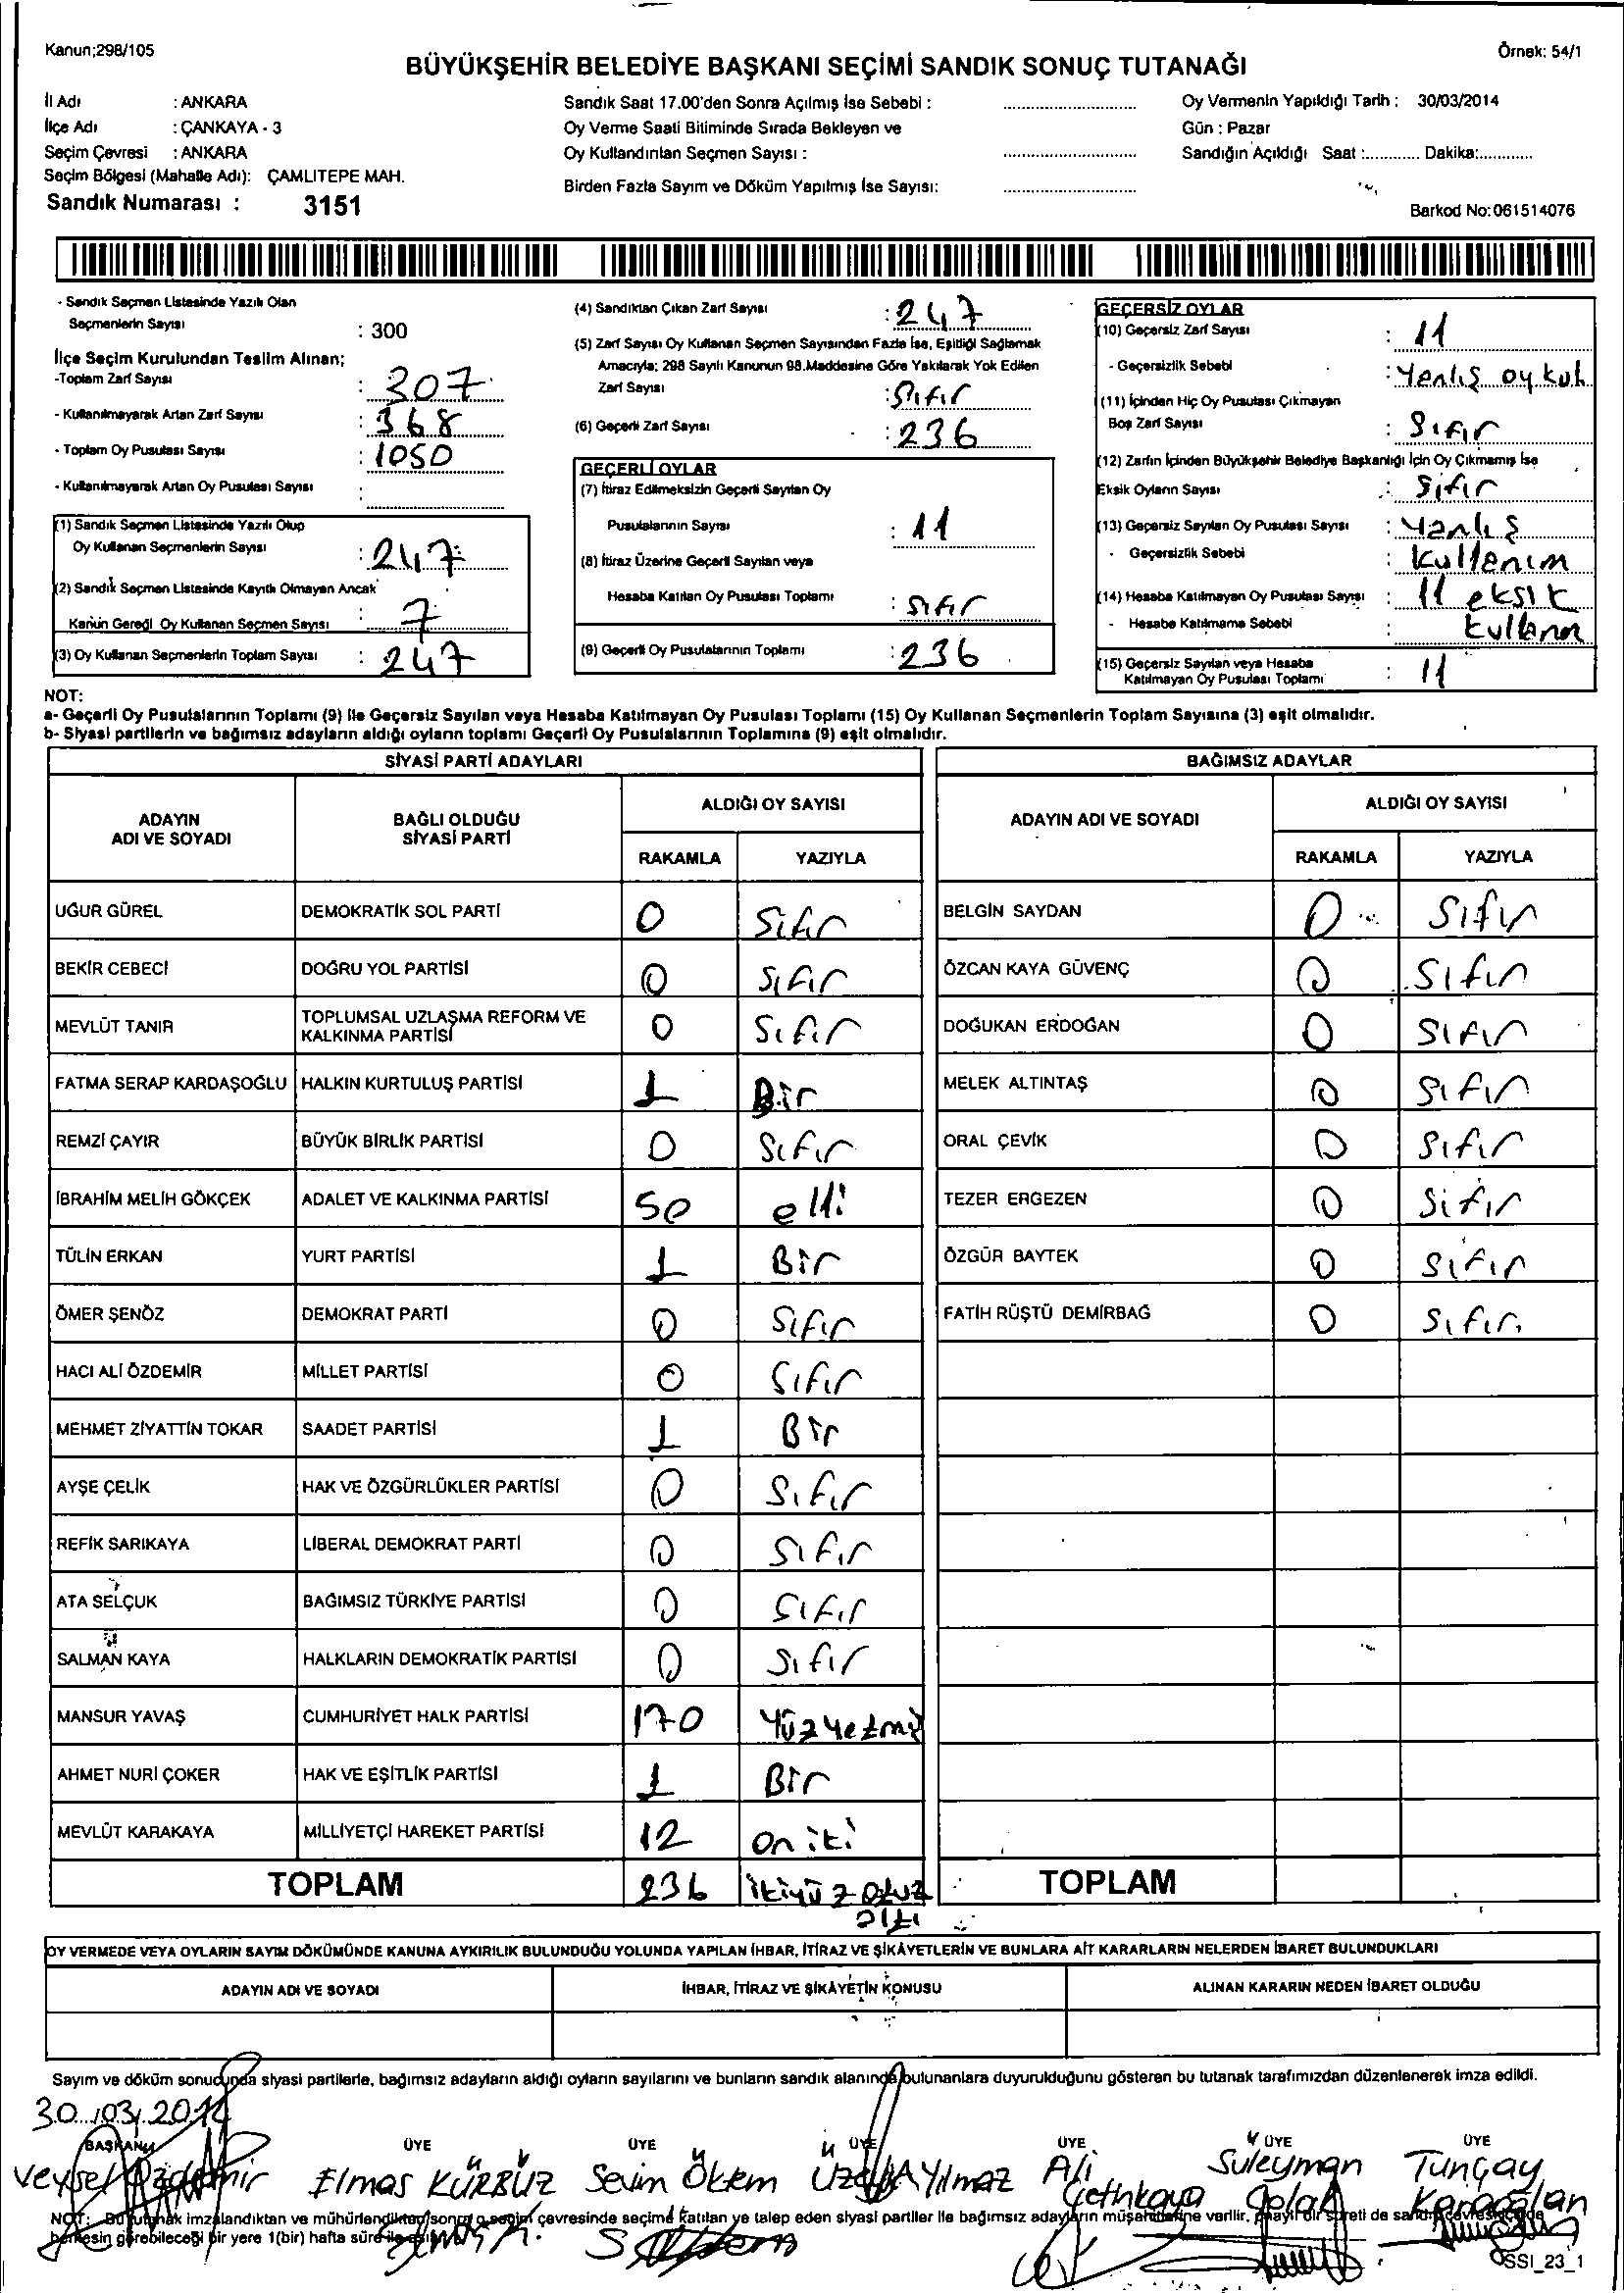 Kanun;298/105
Örnek: 54/1
BÜYÜKŞEHİR BELEDİYE BAŞKANI SEÇİMİ SANDIK SONUÇ TUTANAĞI
İl Adı : ANKARA
İlçe Adı : ÇANKAYA - 3
Seçim Çevresi : ANKARA
Seçim Bölgesi (Mahalle Adı): ÇAMLITEPE MAH.
Sandık Numarası : 3151
Sandık Saat 17.00'den Sonra Açılmış İse Sebebi :
Oy Verme Saati Bitiminde Sırada Bekleyen ve
Oy Kullandırılan Seçmen Sayısı :
Birden Fazla Sayım ve Döküm Yapılmış İse Sayısı:
Oy Vermenin Yapıldığı Tarih : 30/03/2014
Gün : Pazar
Sandığın Açıldığı Saat :............ Dakika:............
Barkod No:061514076
- Sandık Seçmen Listesinde Yazılı Olan
Seçmenlerin Sayısı : 300
İlçe Seçim Kurulundan Teslim Alınan;
-Toplam Zarf Sayısı : 307
- Kullanılmayarak Artan Zarf Sayısı : 368
- Toplam Oy Pusulası Sayısı : 1050
- Kullanılmayarak Artan Oy Pusulası Sayısı :
(1) Sandık Seçmen Listesinde Yazılı Olup
Oy Kullanan Seçmenlerin Sayısı : 247
(2) Sandık Seçmen Listesinde Kayıtlı Olmayan Ancak
Kanun Gereği Oy Kullanan Seçmen Sayısı : 7
(3) Oy Kullanan Seçmenlerin Toplam Sayısı : 247
(4) Sandıktan Çıkan Zarf Sayısı : 247
(5) Zarf Sayısı Oy Kullanan Seçmen Sayısından Fazla İse, Eşitliği Sağlamak
Amacıyla; 298 Sayılı Kanunun 98.Maddesine Göre Yakılarak Yok Edilen
Zarf Sayısı : Sıfır
(6) Geçerli Zarf Sayısı : 236
GEÇERLİ OYLAR
(7) İtiraz Edilmeksizin Geçerli Sayılan Oy
Pusulalarının Sayısı : 11
(8) İtiraz Üzerine Geçerli Sayılan veya
Hesaba Katılan Oy Pusulası Toplamı : Sıfır
(9) Geçerli Oy Pusulalarının Toplamı : 236
GEÇERSİZ OYLAR
(10) Geçersiz Zarf Sayısı : 11
- Geçersizlik Sebebi : Yanlış oy kul
(11) İçinden Hiç Oy Pusulası Çıkmayan
Boş Zarf Sayısı : Sıfır
(12) Zarfın İçinden Büyükşehir Belediye Başkanlığı İçin Oy Çıkmamış İse
Eksik Oyların Sayısı : Sıfır
(13) Geçersiz Sayılan Oy Pusulası Sayısı : Yanlış
- Geçersizlik Sebebi : kullanım
(14) Hesaba Katılmayan Oy Pusulası Sayısı : 11 eksik
- Hesaba Katılmama Sebebi : kullanım
(15) Geçersiz Sayılan veya Hesaba
Katılmayan Oy Pusulası Toplamı : 11
NOT:
a- Geçerli Oy Pusulalarının Toplamı (9) ile Geçersiz Sayılan veya Hesaba Katılmayan Oy Pusulası Toplamı (15) Oy Kullanan Seçmenlerin Toplam Sayısına (3) eşit olmalıdır.
b- Siyasi partilerin ve bağımsız adayların aldığı oyların toplamı Geçerli Oy Pusulalarının Toplamına (9) eşit olmalıdır.
SİYASİ PARTİ ADAYLARI
ADAYIN ADI VE SOYADI
BAĞLI OLDUĞU SİYASİ PARTİ
ALDIĞI OY SAYISI
RAKAMLA YAZIYLA
UĞUR GÜREL DEMOKRATİK SOL PARTİ 0 Sıfır
BEKİR CEBECİ DOĞRU YOL PARTİSİ 0 Sıfır
MEVLÜT TANIR TOPLUMSAL UZLAŞMA REFORM VE KALKINMA PARTİSİ 0 Sıfır
FATMA SERAP KARDAŞOĞLU HALKIN KURTULUŞ PARTİSİ 1 Bir
REMZİ ÇAYIR BÜYÜK BİRLİK PARTİSİ 0 Sıfır
İBRAHİM MELİH GÖKÇEK ADALET VE KALKINMA PARTİSİ 50 elli
TÜLİN ERKAN YURT PARTİSİ 1 Bir
ÖMER ŞENÖZ DEMOKRAT PARTİ 0 Sıfır
HACI ALİ ÖZDEMİR MİLLET PARTİSİ 0 Sıfır
MEHMET ZİYATTİN TOKAR SAADET PARTİSİ 1 Bir
AYŞE ÇELİK HAK VE ÖZGÜRLÜKLER PARTİSİ 0 Sıfır
REFİK SARIKAYA LİBERAL DEMOKRAT PARTİ 0 Sıfır
ATA SELÇUK BAĞIMSIZ TÜRKİYE PARTİSİ 0 Sıfır
SALMAN KAYA HALKLARIN DEMOKRATİK PARTİSİ 0 Sıfır
MANSUR YAVAŞ CUMHURİYET HALK PARTİSİ 170 Yüzyetmiş
AHMET NURİ ÇOKER HAK VE EŞİTLİK PARTİSİ 1 Bir
MEVLÜT KARAKAYA MİLLİYETÇİ HAREKET PARTİSİ 12 on iki
TOPLAM 236 ikiyüz otuz altı
BAĞIMSIZ ADAYLAR
ADAYIN ADI VE SOYADI
ALDIĞI OY SAYISI
RAKAMLA YAZIYLA
BELGİN SAYDAN 0 Sıfır
ÖZCAN KAYA GÜVENÇ 0 Sıfır
DOĞUKAN ERDOĞAN 0 Sıfır
MELEK ALTINTAŞ 0 Sıfır
ORAL ÇEVİK 0 Sıfır
TEZER ERGEZEN 0 Sıfır
ÖZGÜR BAYTEK 0 Sıfır
FATİH RÜŞTÜ DEMİRBAĞ 0 Sıfır
TOPLAM
OY VERMEDE VEYA OYLARIN SAYIM DÖKÜMÜNDE KANUNA AYKIRILIK BULUNDUĞU YOLUNDA YAPILAN İHBAR, İTİRAZ VE ŞİKÂYETLERİN VE BUNLARA AİT KARARLARIN NELERDEN İBARET BULUNDUKLARI
ADAYIN ADI VE SOYADI
İHBAR, İTİRAZ VE ŞİKÂYETİN KONUSU
ALINAN KARARIN NEDEN İBARET OLDUĞU
Sayım ve döküm sonucunda siyasi partilerle, bağımsız adayların aldığı oyların sayılarını ve bunların sandık alanında bulunanlara duyurulduğunu gösteren bu tutanak tarafımızdan düzenlenerek imza edildi.
30/03/2014
BAŞKAN ÜYE ÜYE ÜYE ÜYE ÜYE ÜYE
Veysel Özdemir Elmas KÜRBÜZ Sevim Öktem Yılmaz Ali Çetinkaya Süleyman Çolak Tunçay Karaaslan
NOT: Bu tutanak imzalandıktan ve mühürlendikten sonra o seçim çevresinde seçime katılan ve talep eden siyasi partiler ile bağımsız adayların müşahitlerine verilir.
herkesin görebileceği bir yere 1(bir) hafta süre ile
SSI_23_1